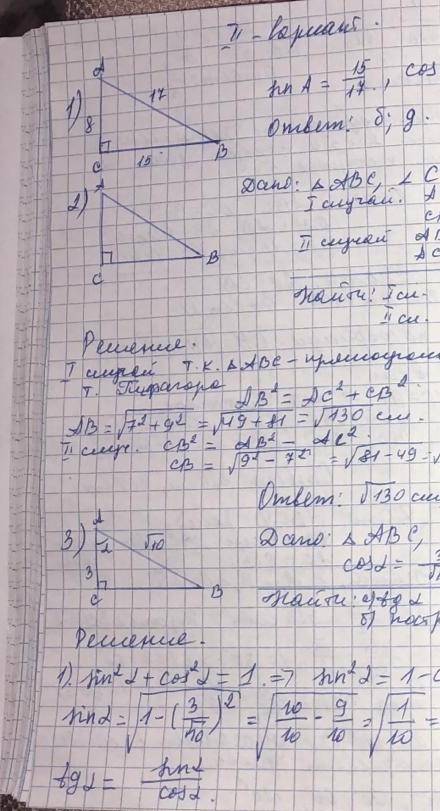 II - вариант.
1) A 17 8 C 15 B
sin A = 15/17, cos
Ответ: б; д.
2) A C B
Дано: △ABC, ∠C
I случай. A
II случай AB
AC
Найти: I сл.
II сл.
Решение.
I случай т.к. △ABC - прямоугол
т. Пифагора AB² = AC² + CB²
AB = √7² + 9² = √49 + 81 = √130 см.
II случ. CB² = AB² - AC².
CB = √9² - 7² = √81 - 49 = √
Ответ: √130 см
3) A α √10 3 C B
Дано: △ABC,
cosα = 3/√1
Найти: а) tgα
б) постр
Решение.
1). sin²α + cos²α = 1. => sin²α = 1 - c
sinα = √1 - (3/√10)² = √10/10 - 9/10 = √1/10 =
tgα = sinα/cosα.